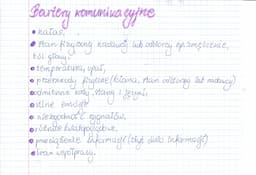 Bariery komunikacyjne
• hałas,
• stan fizyczny nadawcy lub odbiorcy np. zmęczenie,
ból głowy,
• temperatura, upał,
• przeszkody fizyczne (ściana, stan odbiorcy lub nadawcy)
• odmienne kody, slang i język,
• silne emocje
• niezgodność sygnałów,
• różnice światopoglądowe,
• przeciążenie informacji (zbyt dużo informacji)
• brak współpracy.